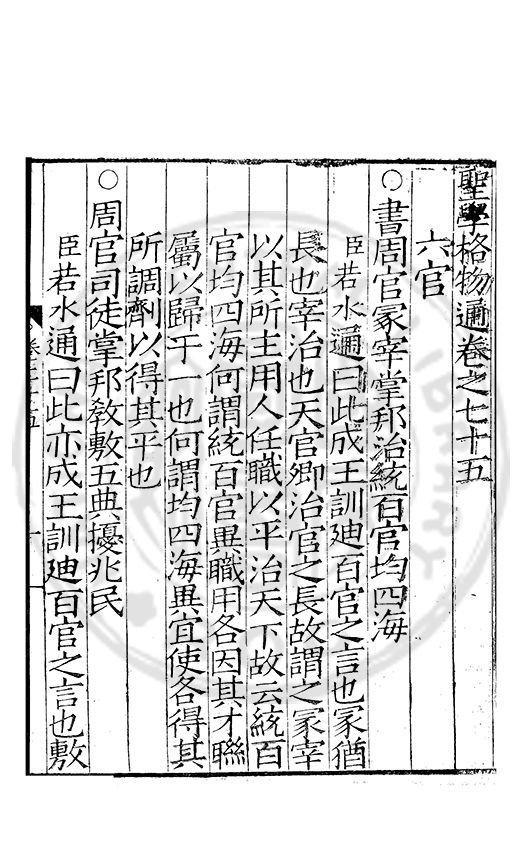 聖學格物通卷之七十五
六官
○書周官冢宰掌邦治統百官均四海
臣若水通曰此成王訓廸百官之言也冢猶
長也宰治也天官卿治官之長故謂之冢宰
以其所主用人任職以平治天下故云統百
官均四海何謂統百官異職用各因其才聯
屬以歸于一也何謂均四海異宜使各得其
所調劑以得其平也
○周官司徒掌邦敎敷五典擾兆民
臣若水通曰此亦成王訓廸百官之言也敷
卷七十五
一